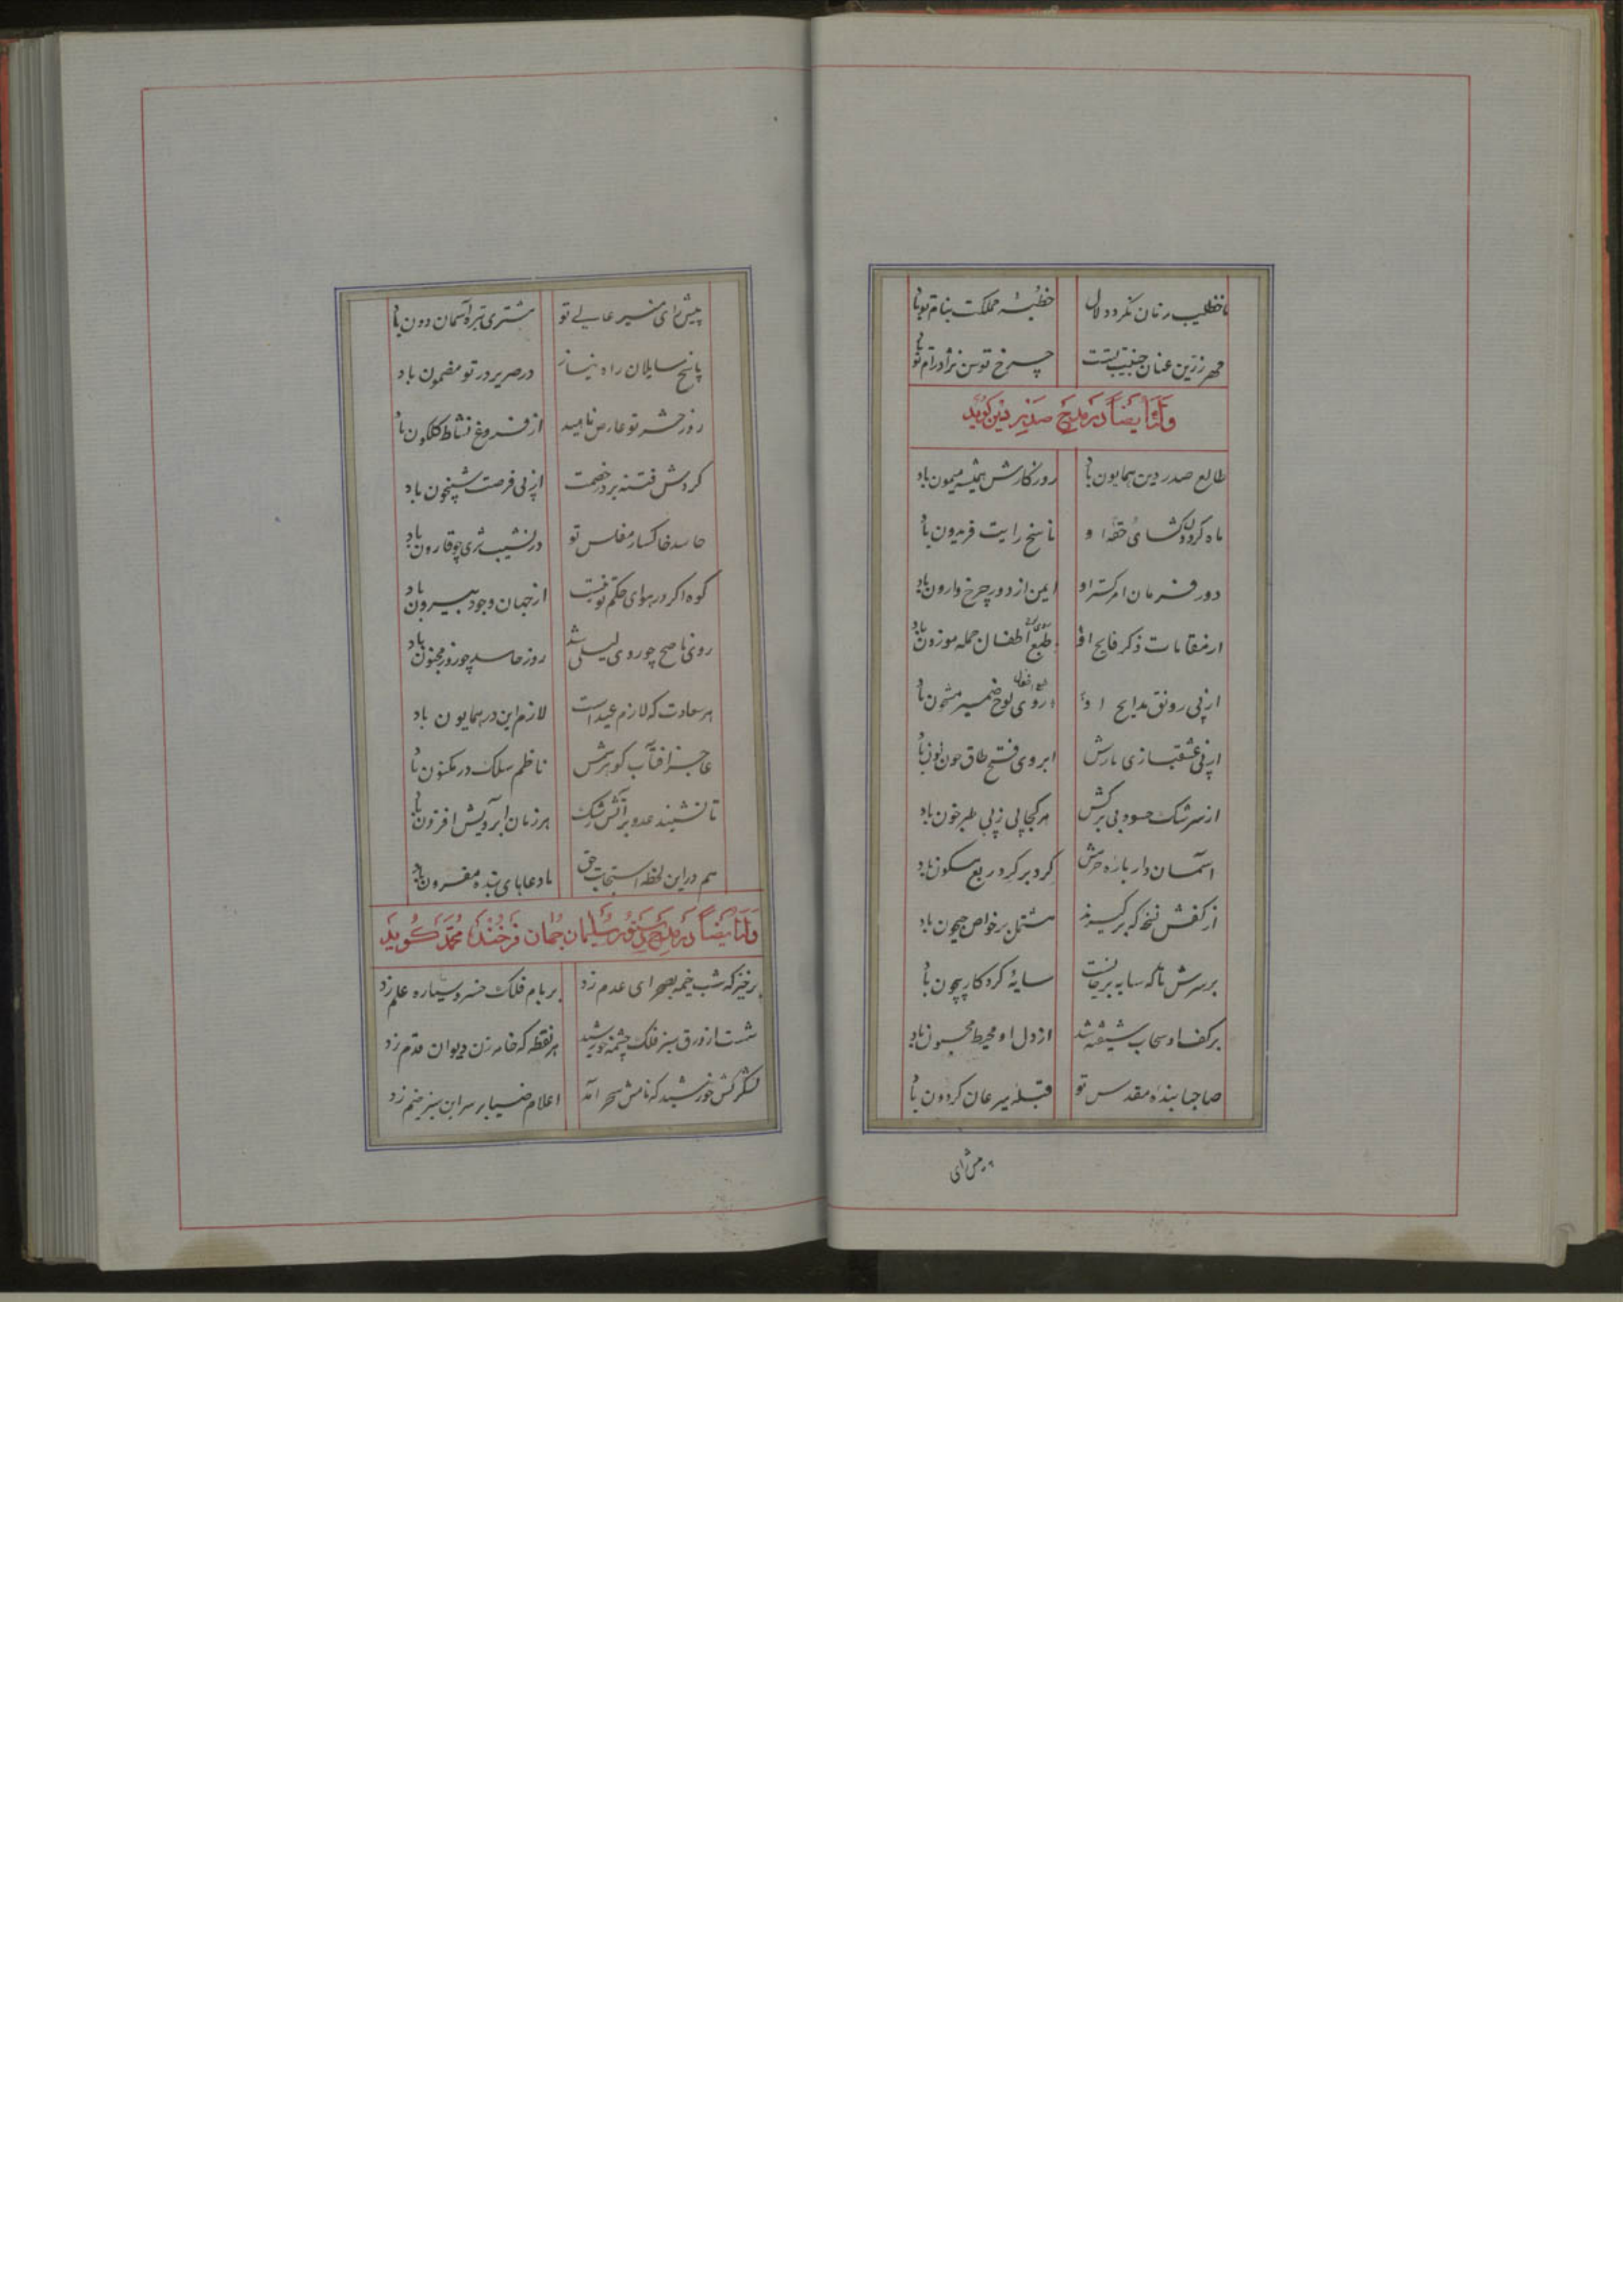 تا خطیب زمان نگردد لال خطبهٔ مملکت بنام تو باد
مهر زرین عنان جنیبت تست چرخ توسن نژاد رام تو باد
وله ایضاً در مدح صدر دین گوید
طالع صدر دین همایون باد روزگارش همیشه میمون باد
ماه گردون گشای حقهٔ او ناسخ رایت فریدون باد
دور فرمان امر کستر او ایمن از دور چرخ وارون باد
از مقامات ذکر فایح او طبع اطفال جمله موزون باد
از پی رونق مدایح او روی لوح ضمیر مشحون باد
از پی عشقبازی ابروی فتح طاق چون نون باد
از سرشک حسود بی برکش هر کجا پی زپی طبر خون باد
آسمان وار باره کرد بر کرد ربع مسکون باد
از کفش نسخه که برگیرند مشتمل بر خواص جیحون باد
بر سرش تا که سایه بر جاست سایهٔ کردکار بیچون باد
بر کف او سحاب شیفته شد از دل او محیط محسون باد
صاحبا بندهٔ مقدس تو قبله سرعان کردون باد
پیش رای
پیش رای منیر عالی تو مشتری تیره آسمان دون باد
پاسخ سایلان راه نیاز در صریر در تو مضمون باد
روز حشر تو عارض ناهید از فروغ نشاط گلگون باد
کردش فتنه بر در خصمت از پی فرصت شبیخون باد
حاسد خاکسار مفلس تو در نشیب ثری چو قارون باد
کوه اکر در هوای حکم تو نیست از جهان وجود بیرون باد
روی ناصح چو روی لیلی شد روز حاسد چو روز مجنون باد
هر سعادت که لازم عید است لازم این در همایون باد
عاجز از آفتاب کوهرش ناظم سلک در مکنون باد
تا نشیند عدو بر آتش رشک هر زمان آبرویش افزون باد
هم در این لحظه استجابت حق با دعاهای بنده مقرون باد
وله ایضاً در مدح دستور سلیمان جهان فرخنده محمد گوید
برخیز که شب خیمه بصحرای عدم زد بر بام فلک خسرو سیاره علم زد
شست از ورق سبز فلک چشمهٔ خورشید هر نقطه که خامه زن دیوان قدم زد
لشکرکش خورشید که نامش سحر آمد اعلام ضیا بر سر این سبز خیم زد